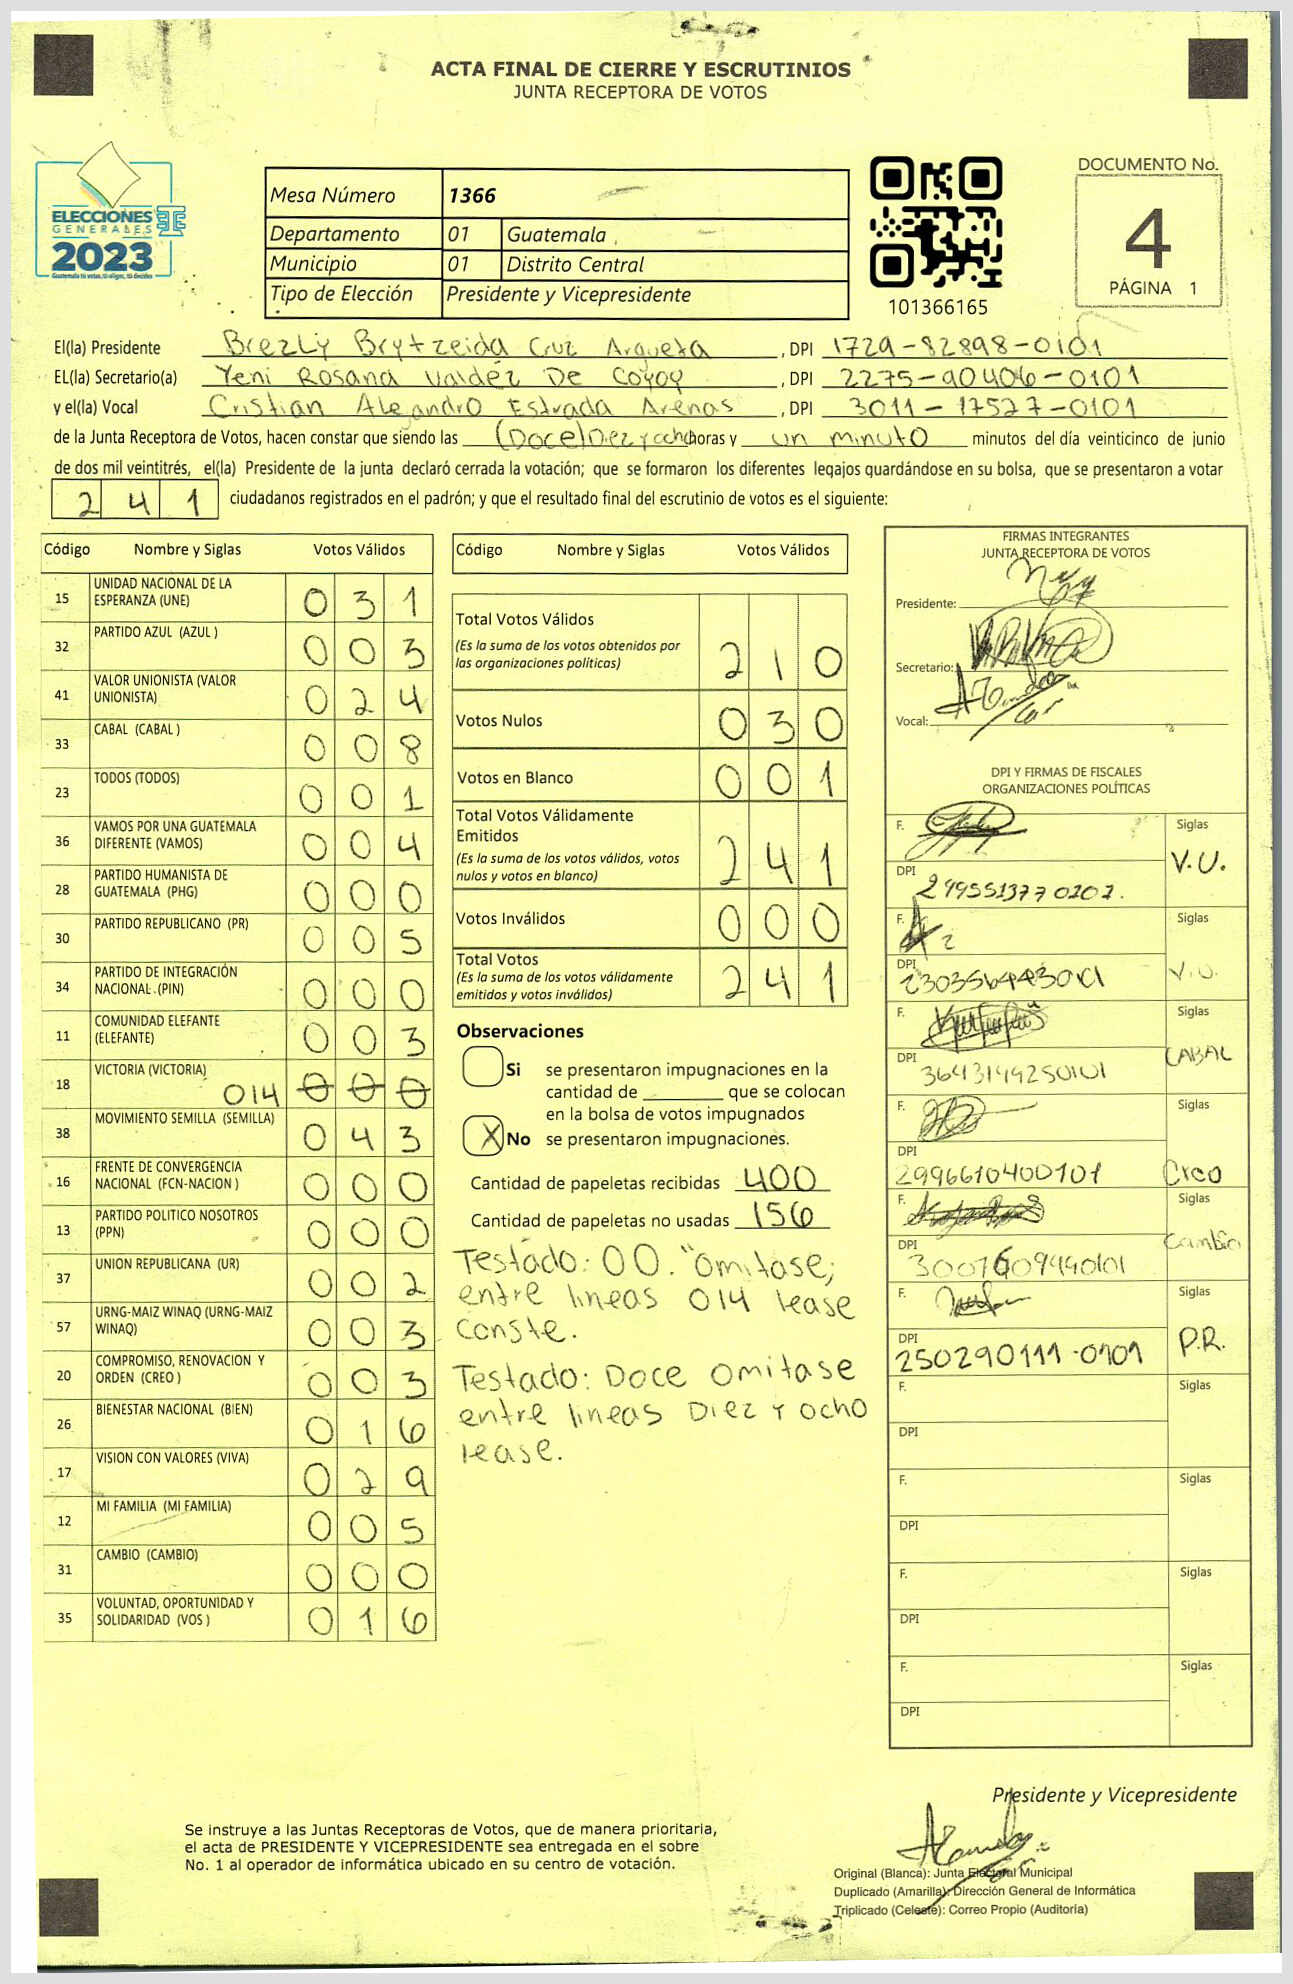 ACTA FINAL DE CIERRE Y ESCRUTINIOS
JUNTA RECEPTORA DE VOTOS
ELECCIONES
GENERALES
2023
Guatemala tú votas, tú eliges, tú decides
Mesa Número 1366
Departamento 01 Guatemala
Municipio 01 Distrito Central
Tipo de Elección Presidente y Vicepresidente
101366165
DOCUMENTO No.
4
PÁGINA 1
El(la) Presidente Brezly Brytzeida Cruz Argueta , DPI 1729-82898-0101
EL(la) Secretario(a) Yeni Rosana Valdéz De Coyoy , DPI 2275-90406-0101
y el(la) Vocal Cristian Alejandro Estrada Arenas , DPI 3011-17527-0101
de la Junta Receptora de Votos, hacen constar que siendo las (Doce) Diez y ocho horas y un minuto minutos del día veinticinco de junio
de dos mil veintitrés, el(la) Presidente de la junta declaró cerrada la votación; que se formaron los diferentes legajos guardándose en su bolsa, que se presentaron a votar
2 4 1 ciudadanos registrados en el padrón; y que el resultado final del escrutinio de votos es el siguiente:
Código Nombre y Siglas Votos Válidos
15 UNIDAD NACIONAL DE LA
ESPERANZA (UNE) 0 3 1
32 PARTIDO AZUL (AZUL ) 0 0 3
41 VALOR UNIONISTA (VALOR
UNIONISTA) 0 2 4
33 CABAL (CABAL ) 0 0 8
23 TODOS (TODOS) 0 0 1
36 VAMOS POR UNA GUATEMALA
DIFERENTE (VAMOS) 0 0 4
28 PARTIDO HUMANISTA DE
GUATEMALA (PHG) 0 0 0
30 PARTIDO REPUBLICANO (PR) 0 0 5
34 PARTIDO DE INTEGRACIÓN
NACIONAL (PIN) 0 0 0
11 COMUNIDAD ELEFANTE
(ELEFANTE) 0 0 3
18 VICTORIA (VICTORIA) 014 0 0 0
38 MOVIMIENTO SEMILLA (SEMILLA) 0 4 3
16 FRENTE DE CONVERGENCIA
NACIONAL (FCN-NACION ) 0 0 0
13 PARTIDO POLITICO NOSOTROS
(PPN) 0 0 0
37 UNION REPUBLICANA (UR) 0 0 2
57 URNG-MAIZ WINAQ (URNG-MAIZ
WINAQ) 0 0 3
20 COMPROMISO, RENOVACION Y
ORDEN (CREO ) 0 0 3
26 BIENESTAR NACIONAL (BIEN) 0 1 6
17 VISION CON VALORES (VIVA) 0 2 9
12 MI FAMILIA (MI FAMILIA) 0 0 5
31 CAMBIO (CAMBIO) 0 0 0
35 VOLUNTAD, OPORTUNIDAD Y
SOLIDARIDAD (VOS ) 0 1 6
Código Nombre y Siglas Votos Válidos
Total Votos Válidos
(Es la suma de los votos obtenidos por
las organizaciones políticas) 2 1 0
Votos Nulos 0 3 0
Votos en Blanco 0 0 1
Total Votos Válidamente
Emitidos
(Es la suma de los votos válidos, votos
nulos y votos en blanco) 2 4 1
Votos Inválidos 0 0 0
Total Votos
(Es la suma de los votos válidamente
emitidos y votos inválidos) 2 4 1
Observaciones
Si se presentaron impugnaciones en la
cantidad de ________ que se colocan
en la bolsa de votos impugnados
X No se presentaron impugnaciones.
Cantidad de papeletas recibidas 400
Cantidad de papeletas no usadas 156
Testado: 00. "omitase;
entre lineas 014 lease
conste.
Testado: Doce omitase
entre lineas Diez y ocho
lease.
FIRMAS INTEGRANTES
JUNTA RECEPTORA DE VOTOS
Presidente:
Secretario:
Vocal:
DPI Y FIRMAS DE FISCALES
ORGANIZACIONES POLÍTICAS
F. Siglas
V.U.
DPI 2495513770202.
F. Siglas
DPI 2303564430101 V.U.
F. Siglas
DPI 3643149250101 CABAL
F. Siglas
DPI
2996610400101 Creo
F. Siglas
DPI Cambio
3007609440101
F. Siglas
DPI P.R.
250290111-0101
F. Siglas
DPI
F. Siglas
DPI
F. Siglas
DPI
F. Siglas
DPI
Presidente y Vicepresidente
Se instruye a las Juntas Receptoras de Votos, que de manera prioritaria,
el acta de PRESIDENTE Y VICEPRESIDENTE sea entregada en el sobre
No. 1 al operador de informática ubicado en su centro de votación.
Original (Blanca): Junta Electoral Municipal
Duplicado (Amarilla): Dirección General de Informática
Triplicado (Celeste): Correo Propio (Auditoría)